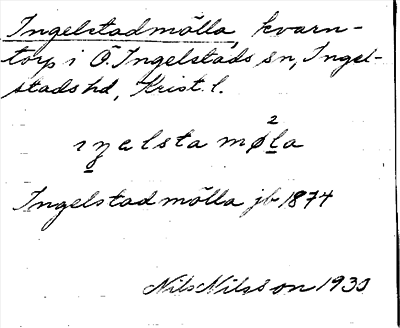 Ingelstadmölla, kvarn-
torp i Ö. Ingelstads sn, Ingel-
stads hd, Krist. l.
Ingelstad mölla jb 1874
Nils Nilsson 1930